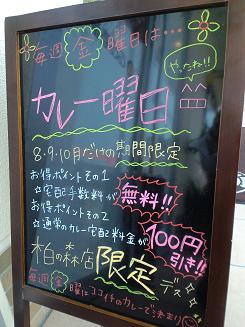 毎週金曜日は…
やったね!!
カレー曜日
8・9・10月だけの期間限定
お得ポイントその1
☆宅配手数料が無料!!
お得ポイントその2
☆通常のカレー宅配料金が100円引き!!
柏の森店限定デス
毎週金曜はココイチのカレーで決まり